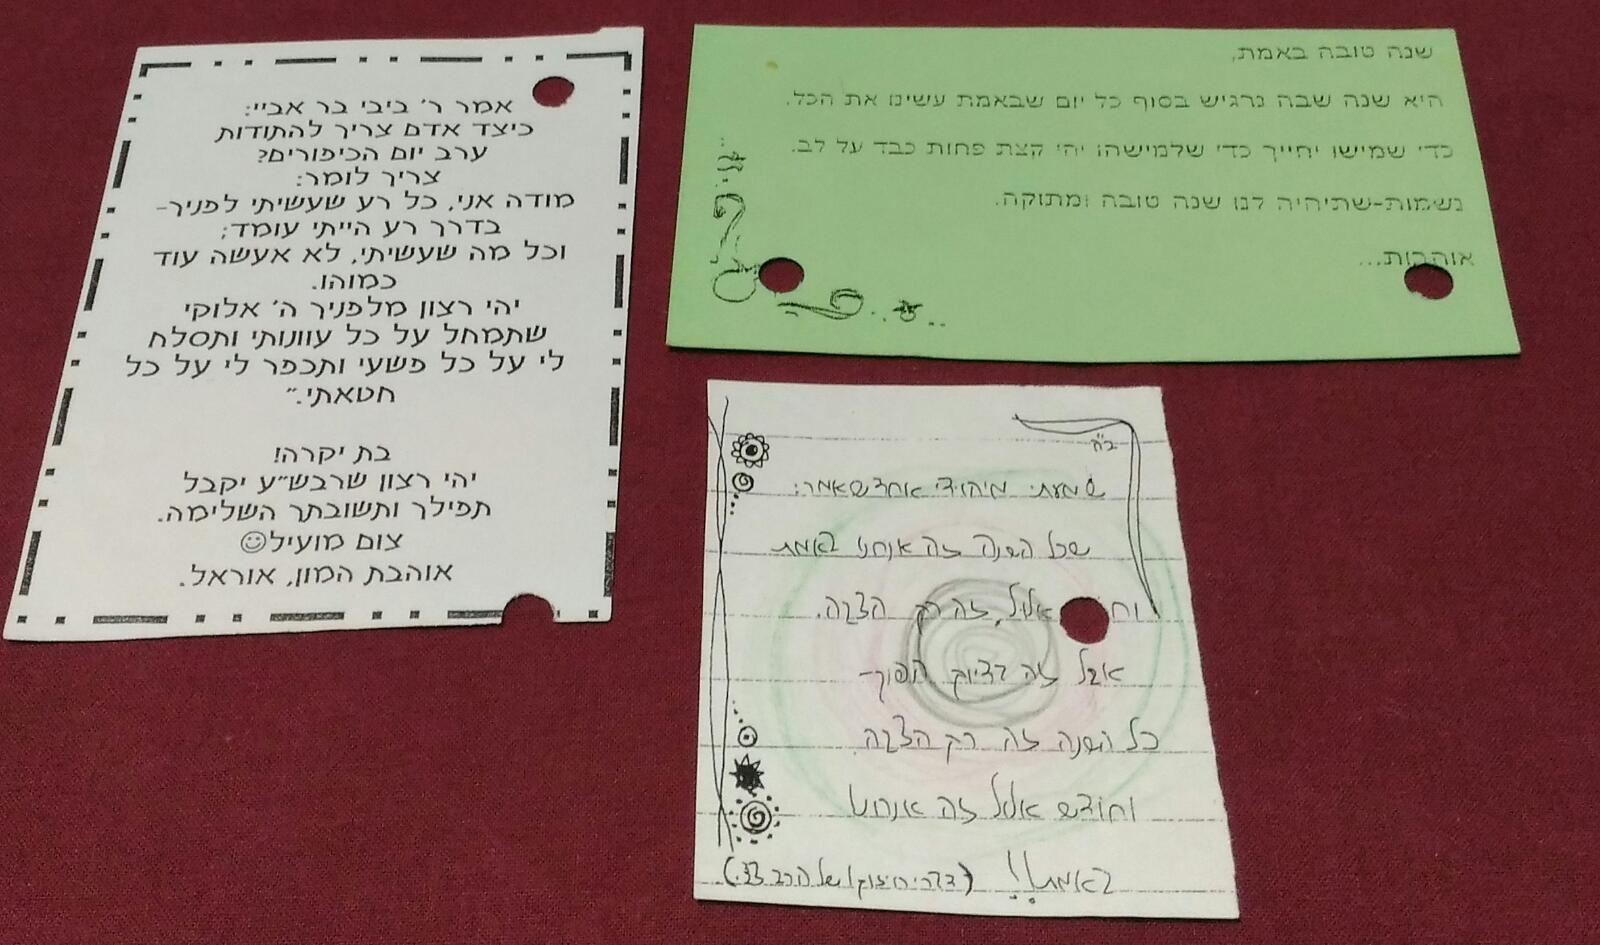 אמר ר׳ ביבי בר אביי:
כיצד אדם צריך להתודות
ערב יום הכיפורים?
צריך לומר:
מודה אני, כל רע שעשיתי לפניך-
בדרך רע הייתי עומד;
וכל מה שעשיתי, לא אעשה עוד
כמוהו.
יהי רצון מלפניך ה׳ אלוקי
שתמחל על כל עוונותי ותסלח
לי על כל פשעי ותכפר לי על כל
חטאתי.״
בת יקרה!
יהי רצון שרבש״ע יקבל
תפילך ותשובתך השלימה.
צום מועיל☺
אוהבת המון, אוראל.
שנה טובה באמת,
היא שנה שבה נרגיש בסוף כל יום שבאמת עשינו את הכל.
כדי שמישו יחייך כדי שלמישהו יהי קצת פחות כבד על לב.
נשמות-שתיהיה לנו שנה טובה ומתוקה.
אוהבות...
ב״ה
שמעתי מיהודי אחד שאמר:
שכל השנה זה אנחנו באמת
אלול, זה רק הצגה.
אבל זה בדיוק הפוך-
כל השנה זה רק הצגה.
וחודש אלול זה אנחנו
באמת!! (דברי חיזוק של הרב